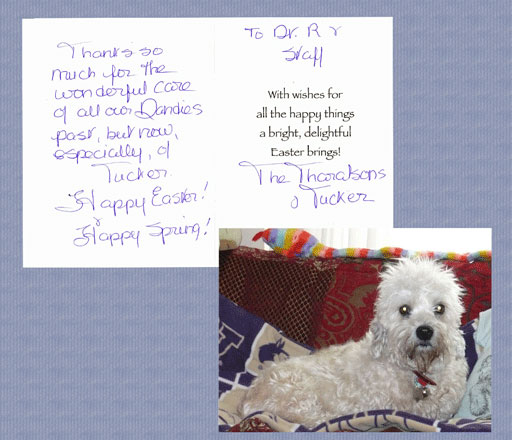 Thanks so
much for the
wonderful care
of all our Dandies
past, but now,
especially, of
Tucker.
Happy Easter!
Happy Spring!
To Dr. R &
Staff
With wishes for
all the happy things
a bright, delightful
Easter brings!
The Tharatsons
& Tucker